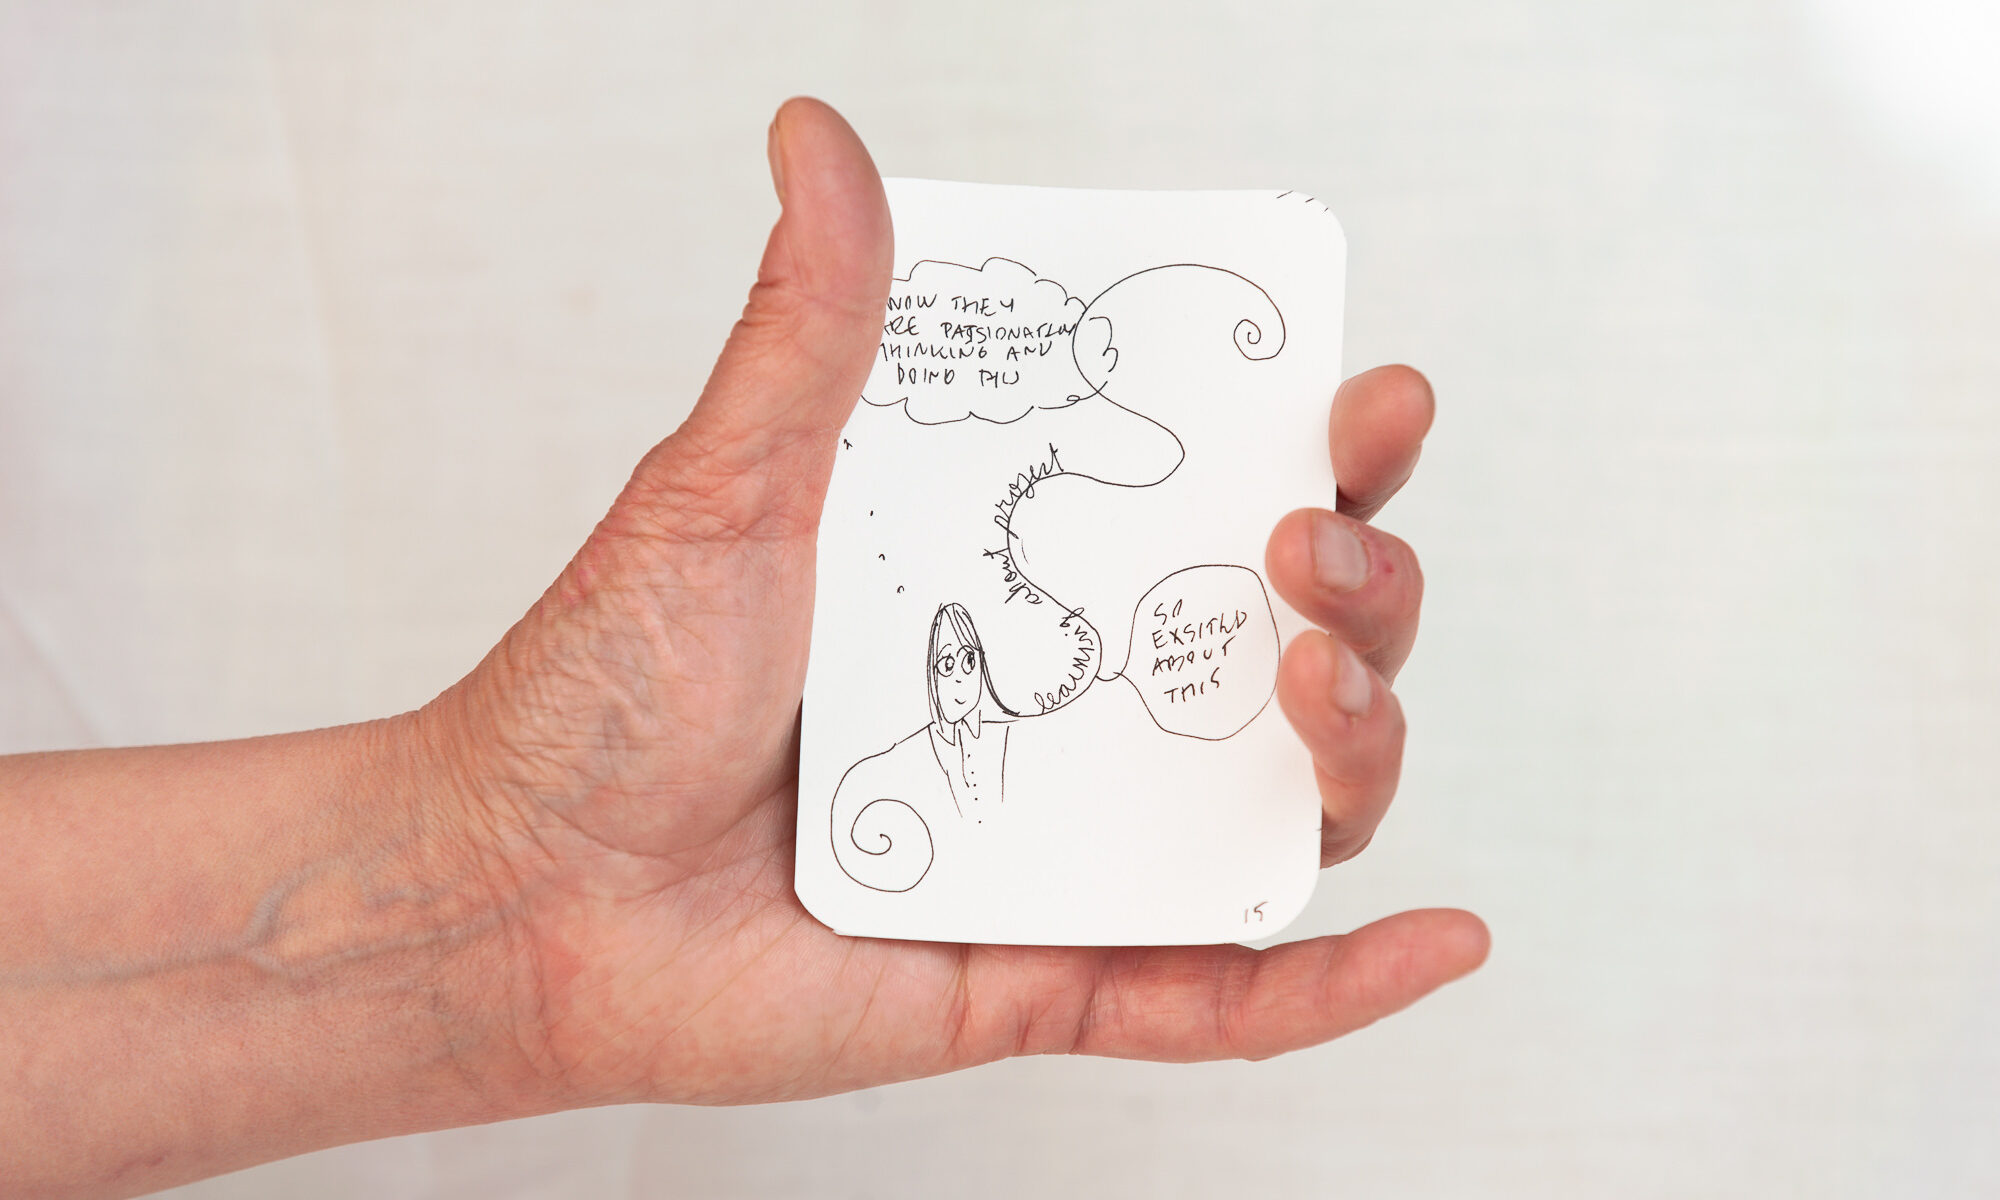 NOW THEY
ARE PASSIONATELY
THINKING AND
DOING
learning about project
SO
EXSITED
ABOUT
THIS
15